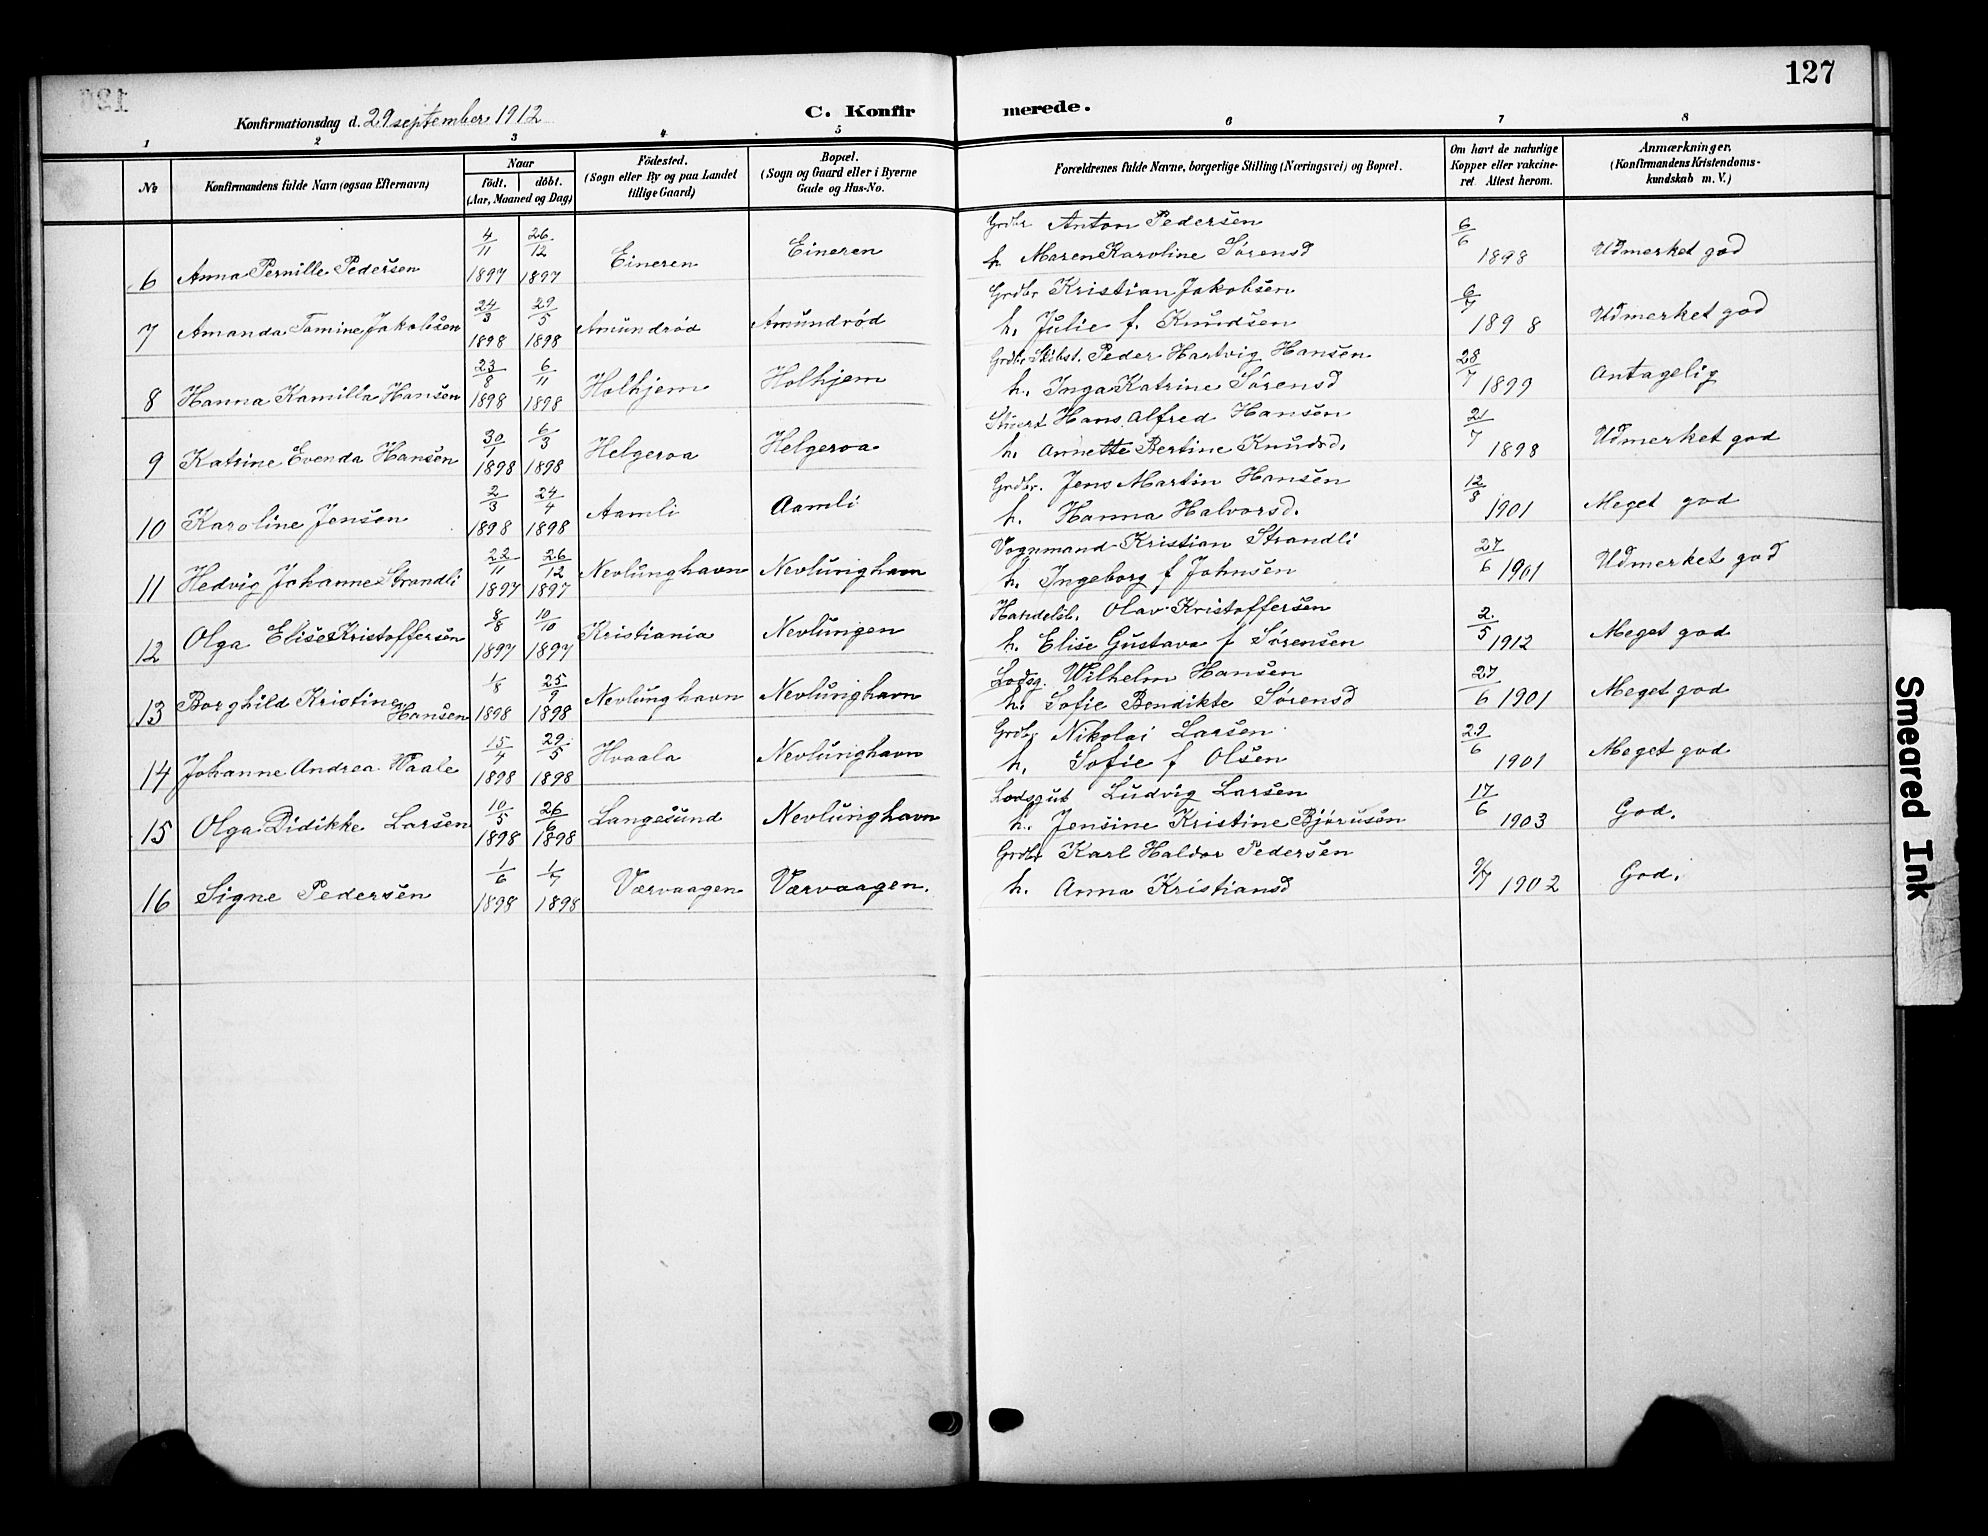 127
Konfirmationsdag d. 29 september 1912
C. Konfirmerede.
1 2 3 4 5 6 7 8
No
Konfirmandens fulde Navn (ogsaa Efternavn)
Naar
födt. döbt.
(Aar, Maaned og Dag)
Födested.
(Sogn eller By og paa Landet
tillige Gaard)
Bopæl.
(Sogn og Gaard eller i Byerne
Gade og Hus-No.
Forældrenes fulde Navne, borgerlige Stilling (Næringsvei) og Bopæl.
Om havt de naturlige
Kopper eller vakcine-
ret. Attest herom.
Anmærkninger.
(Konfirmandens Kristendoms-
kundskab m. V.)
6 Anna Pernille Pedersen 4/11 1897 26/12 1897 Eineren Eineren Grdbr Anton Pedersen
h. Maren Karoline Sørensd 6/6 1898 Udmerket god
7 Amanda Tomine Jakobsen 24/3 1898 29/5 1898 Amundrød Amundrød Grdbr Kristian Jakobsen
h. Julie f. Knudsen 6/7 1898 Udmerket god
8 Hanna Kamilla Hansen 23/8 1898 6/11 1898 Holhjem Holhjem Grdbr Skibst. Peder Hartvig Hansen
h. Inga Katrine Sørensd 28/7 1899 Antagelig
9 Katrine Evenda Hansen 30/1 1898 6/3 1898 Helgeroa Helgeroa Stuert Hans Alfred Hansen
h. Annette Bertine Knudsd. 21/7 1898 Udmerket god
10 Karoline Jensen 2/3 1898 24/4 1898 Aamli Aamli Grdbr. Jens Martin Hansen
h. Hanna Halvorsd. 12/8 1901 Meget god
11 Hedvig Johanne Strandli 22/11 1897 26/12 1897 Nevlunghavn Nevlunghavn Vognmand Kristian Strandli
h. Ingeborg f Johnsen 27/6 1901 Udmerket god
12 Olga Elise Kristoffersen 8/8 1897 10/10 1897 Kristiania Nevlungen Handelsb. Olav Kristoffersen
h. Elise Gustava f Sørensen 2/5 1912 Meget god
13 Borghild Kristine Hansen 1/8 1898 25/9 1898 Nevlunghavn Nevlunghavn Lodsg. Wilhelm Hansen
h. Sofie Bendikte Sørensd 27/6 1901 Meget god
14 Johanne Andrea Vaale 15/4 1898 29/5 1898 Hvaala Nevlunghavn Grdbr Nikolai Larsen
h. Sofie f Olsen 29/6 1901 Meget god
15 Olga Didikke Larsen 10/5 1898 26/6 1898 Langesund Nevlunghavn Lodsgut Ludvig Larsen
h. Jensine Kristine Bjørnsen 17/6 1903 God.
16 Signe Pedersen 1/6 1898 1/7 1898 Værvaagen Værvaagen. Grdbr Karl Haldor Pedersen
h. Anna Kristiansd 9/7 1902 God.
Smeared Ink